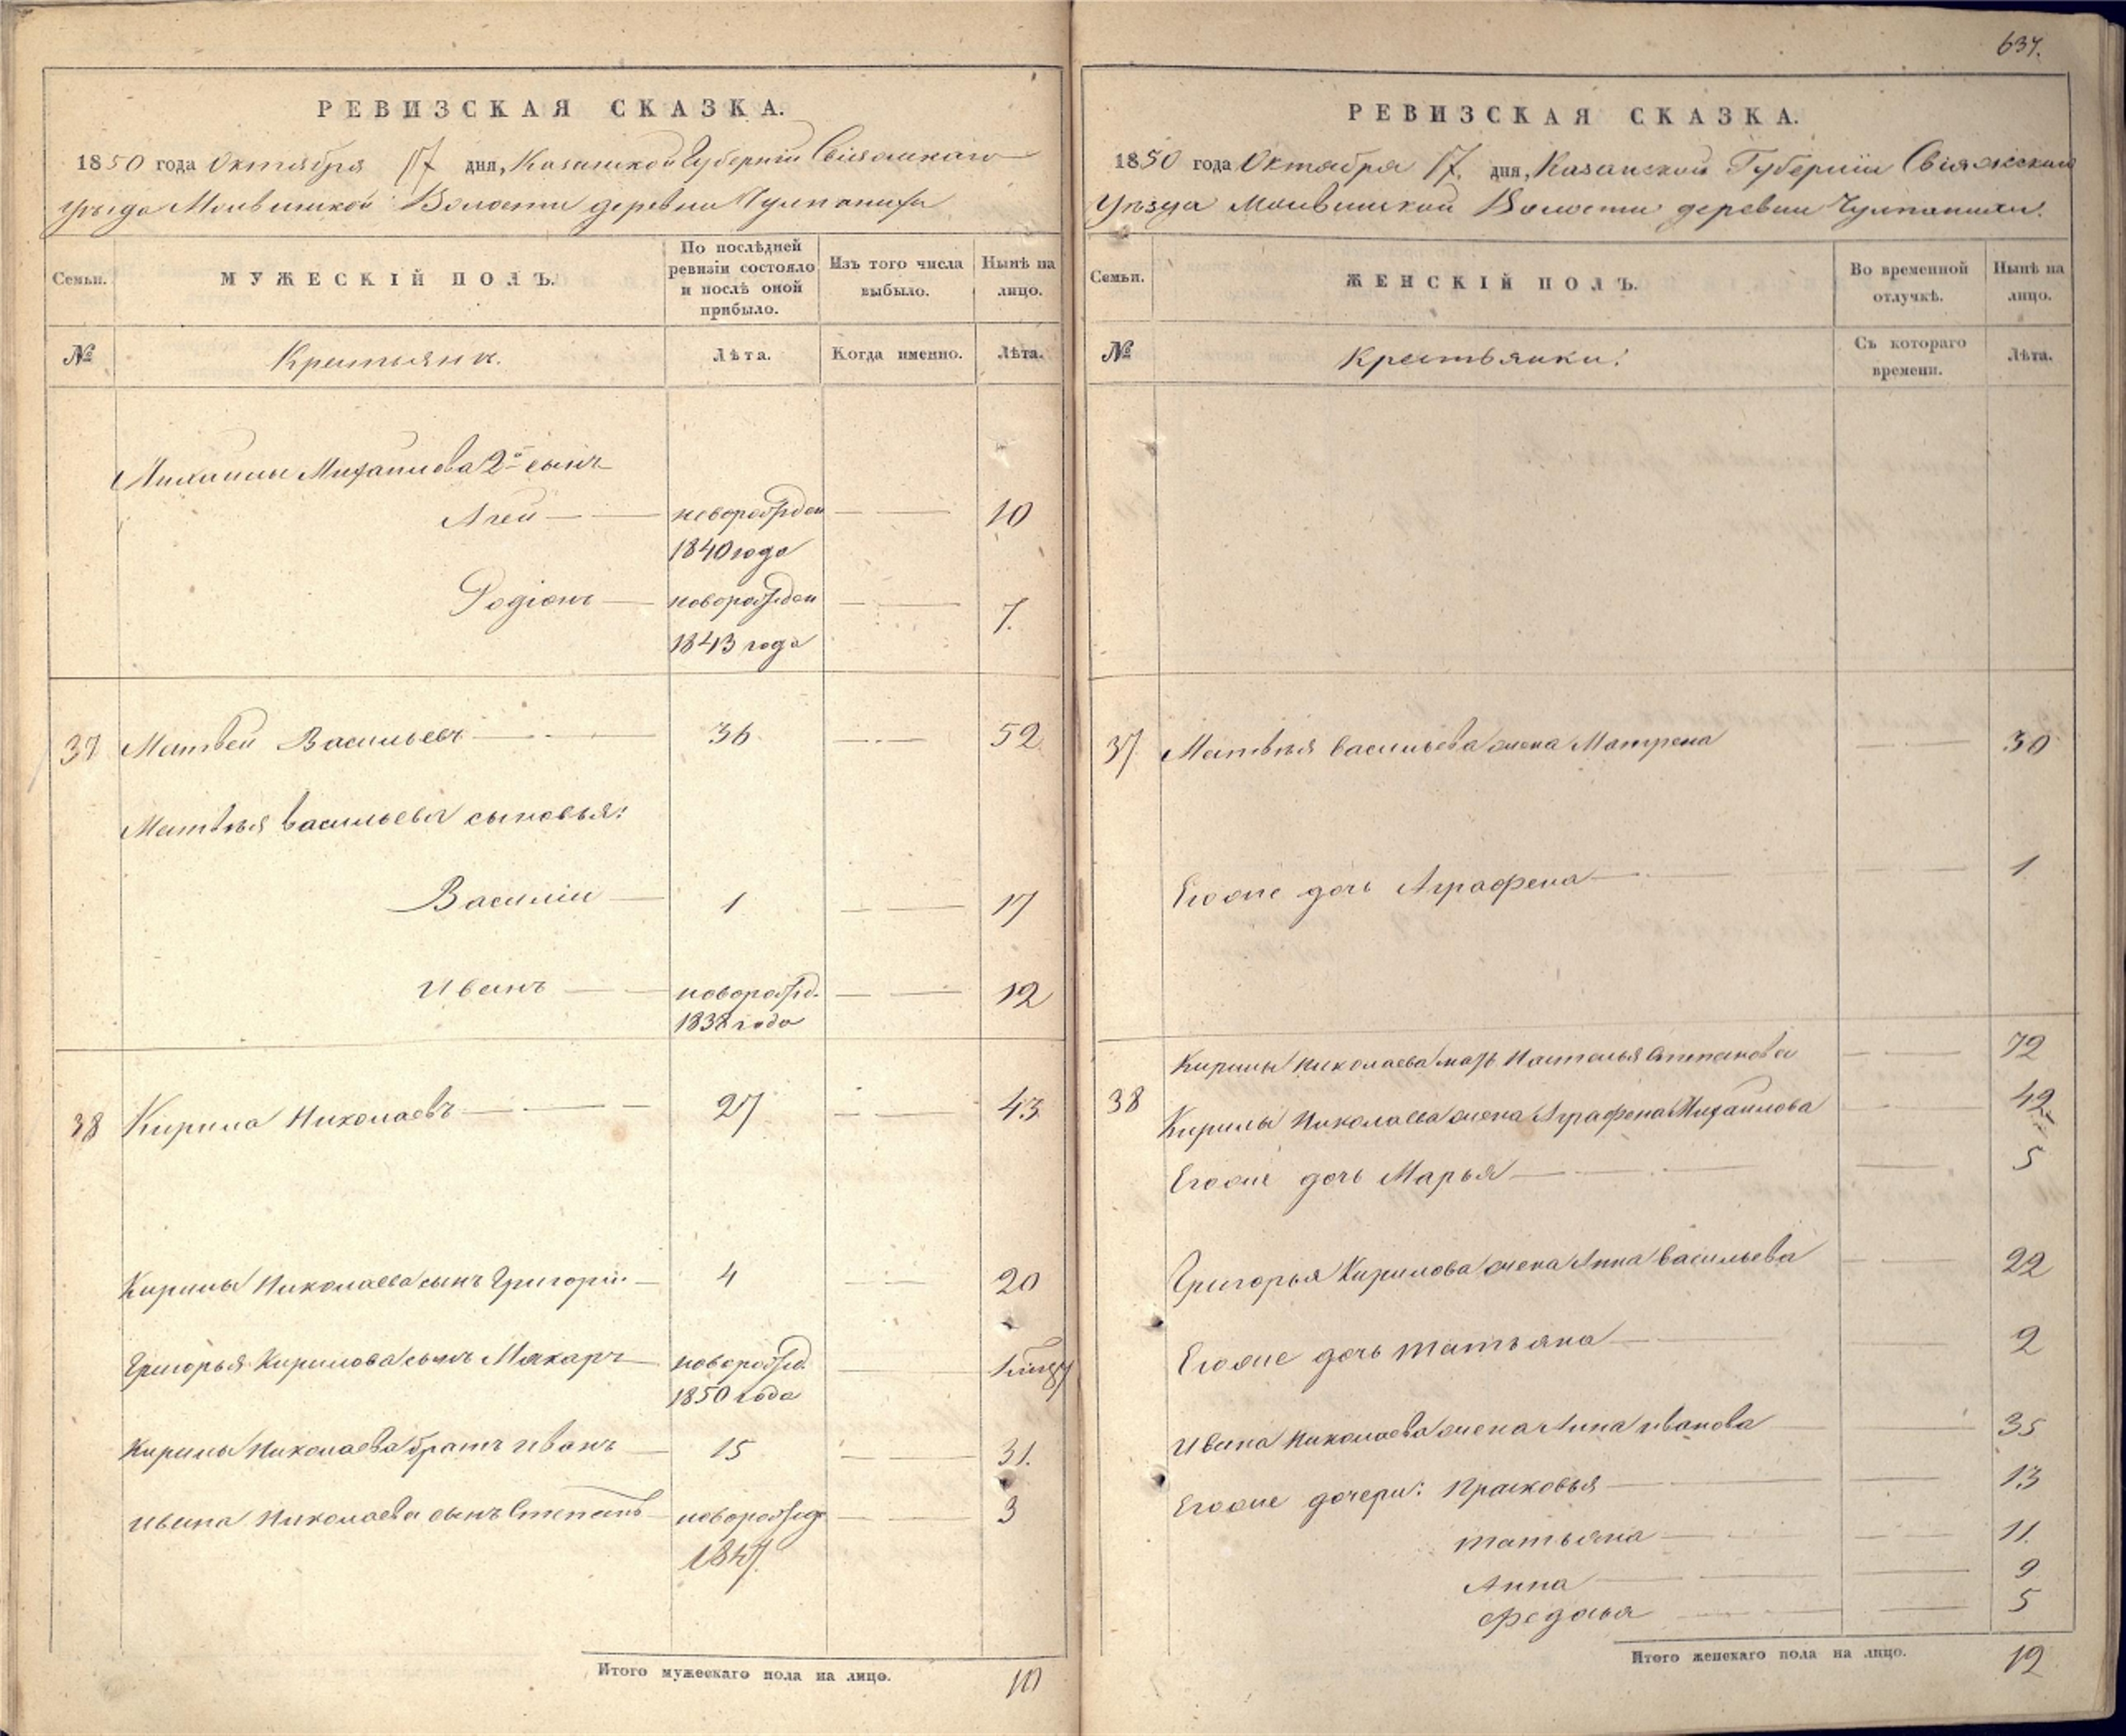 РЕВИЗСКАЯ СКАЗКА.
1850 года Октября 17 дня, Казанской Губернiи Свiяжскаго
уѣзда Волости деревни
Семьи.
МУЖЕСКІЙ ПОЛЪ.
По послѣдней
ревизіи состояло
и послѣ оной
прибыло.
Изъ того числа
выбыло.
Нынѣ на
лицо.
№
Крестьяне.
Лѣта.
Когда именно.
Лѣта.
Михайлова 2й сынъ
Агей новорожден 10
1840 года
Родіонъ новорожден 7.
1843 года
37 Матвей Васильевъ 36 52
Матвѣя Васильева сыновья:
Василiй 1 17
Иванъ новорожд. 12
1838 года
38 Кирила Николаевъ 27 43
Кирилы Николаева сынъ Григорiй 4 20
Григорья Кирилова сынъ Макаръ новорожд.
1850 года
Кирилы Николаева братъ Иванъ 15 31.
Ивана Николаева сынъ Степанъ новорожд 3
1847.
Итого мужескаго пола на лицо. 10
637.
РЕВИЗСКАЯ СКАЗКА.
1850 года Октября 17. дня, Казанской Губернiи Свiяжскаго
Уѣзда Волости деревни
Семьи.
ЖЕНСКІЙ ПОЛЪ.
Во временной
отлучкѣ.
Нынѣ на
лицо.
№
Крестьянки:
Съ котораго
времени.
Лѣта.
37 Матвѣя Васильева жена Матрена 30
Егоже дочь Аграфена 1
Кирилы Николаева мать Наталья Степанова 72
38 Кирилы Николаева жена Аграфена Михайлова 42
Егоже дочь Марья 5
Григорья Кирилова жена Анна Васильева 22
Егоже дочь Татьяна 2
Ивана Николаева жена Анна Иванова 35
Егоже дочери: Прасковья 13
Татьяна 11.
Анна 9
Федосья 5
Итого женскаго пола на лицо. 12